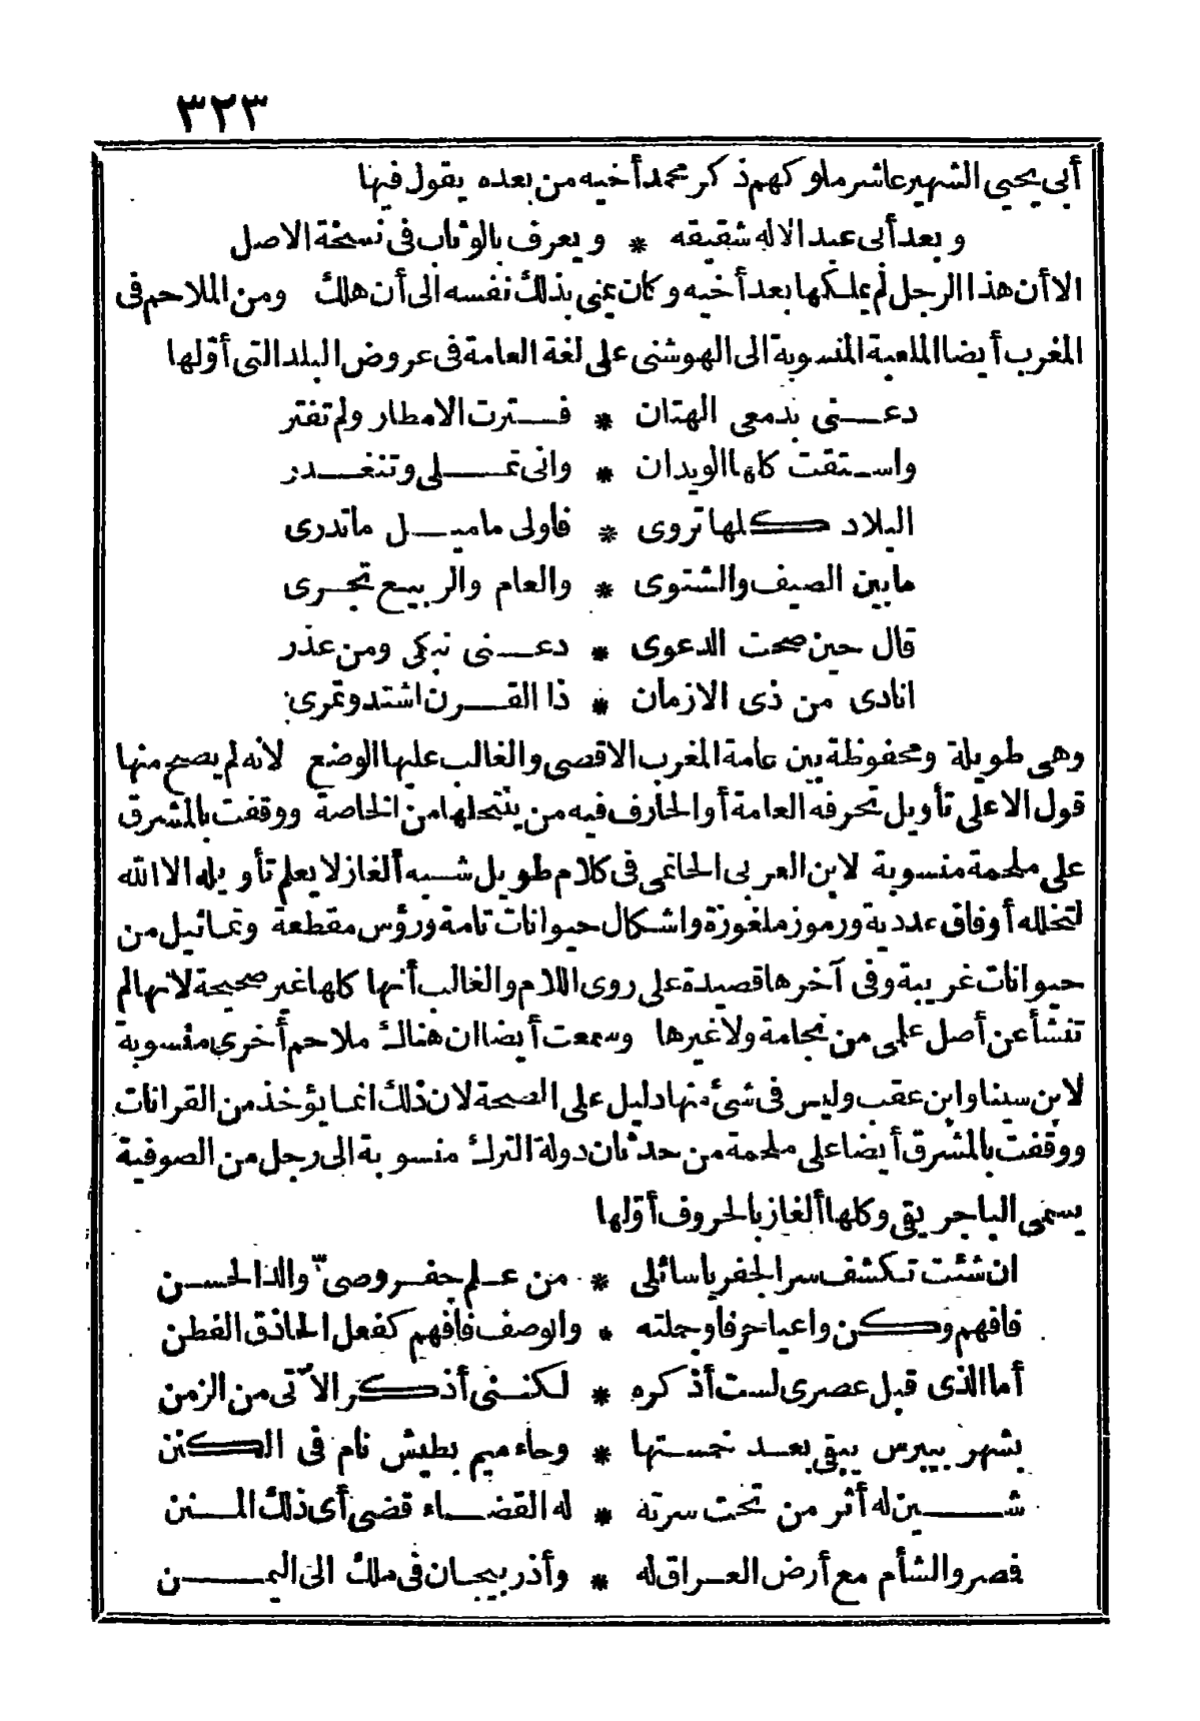 ٣٢٣
أبي يحيى الشهير عاشر ملوكهم ذكر محمد أخيه من بعده يقول فيها
وبعد أبى عبد الاله شقيقه * ويعرف بالوثاب فى نسخة الاصل
الاأن هذا الرجل لم يملكها بعد أخيه وكان يمنى بذلك نفسه الى أن هلك ومن الملاحم فى
المغرب أيضا الملعبة المنسوبة الى الهوشنى على لغة العامة فى عروض البلد التى أولها
دعــنى بدمعى الهتان * فــترت الامطار ولم تفتر
واسـتقت كلها الويدان * وانى تمـــلى وتنغـــدر
البلاد كلها تروى * فاولى ماميــل ماتدرى
مابين الصيف والشتوى * والعام والربيع تجــرى
قال حين صحت الدعوى * دعــنى نبكى ومن عذر
انادى من ذى الازمان * ذا القــرن اشتد وتمرى
وهى طويلة ومحفوظة بين عامة المغرب الاقصى والغالب عليها الوضع لانه لم يصح منها
قول الاعلى تأويل تحرفه العامة أوالحارف فيه من ينتحلها من الخاصة ووقفت بالمشرق
على ملحمة منسوبة لابن العربى الحاتمى فى كلام طويل شبه ألغاز لا يعلم تأويله الا الله
لتخلله أوفاق عددية ورموز ملغوزة واشكال حيوانات تامة ورؤس مقطعة وتماثيل من
حيوانات غريبة وفى آخرها قصيدة على روى اللام والغالب أنها كلها غير صحيحة لانها لم
تنشأ عن أصل علمى من نجامة ولا غيرها وسمعت أيضا ان هناك ملاحم أخرى منسوبة
لابن سينا وابن عقب وليس فى شئ منها دليل على الصحة لان ذلك انما يؤخذ من القرانات
ووقفت بالمشرق أيضا على ملحمة من حدثان دولة الترك منسوبة الى رجل من الصوفية
يسمى الباجريقى وكلها ألغاز بالحروف أولها
ان شئت تكشف سر الجفر ياسائلى * من عــلم جفــر وصىّ والد الحســن
فافهم وكــن واعيا حرفا وجملته * والوصف فافهم كفعل الحاذق الفطن
أما الذى قبل عصرى لست أذكره * لكنــنى أذكــر الآتى من الزمن
بشهر بيبرس يبقى بعــد خمستها * وحاء ميم بطيش نام فى الكنن
شــــين له أثر من تحت سرته * له القضــاء قضى أى ذلك المــنن
فصر والشأم مع أرض العــراق له * وأذربيجــان فى ملك الى اليمــــن